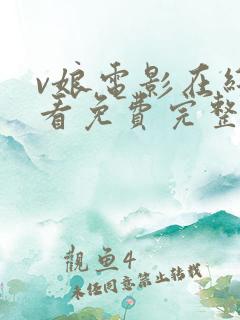 v娘电影在线
看免費完整
觀魚4
未经同意禁止转载